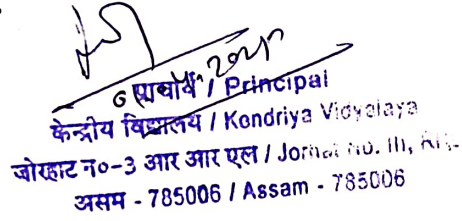 प्राचार्य / Principal
केन्द्रीय विद्यालय / Kendriya Vidyalaya
जोरहाट न०-3 आर आर एल / Jorhat No. III,
असम - 785006 / Assam - 785006